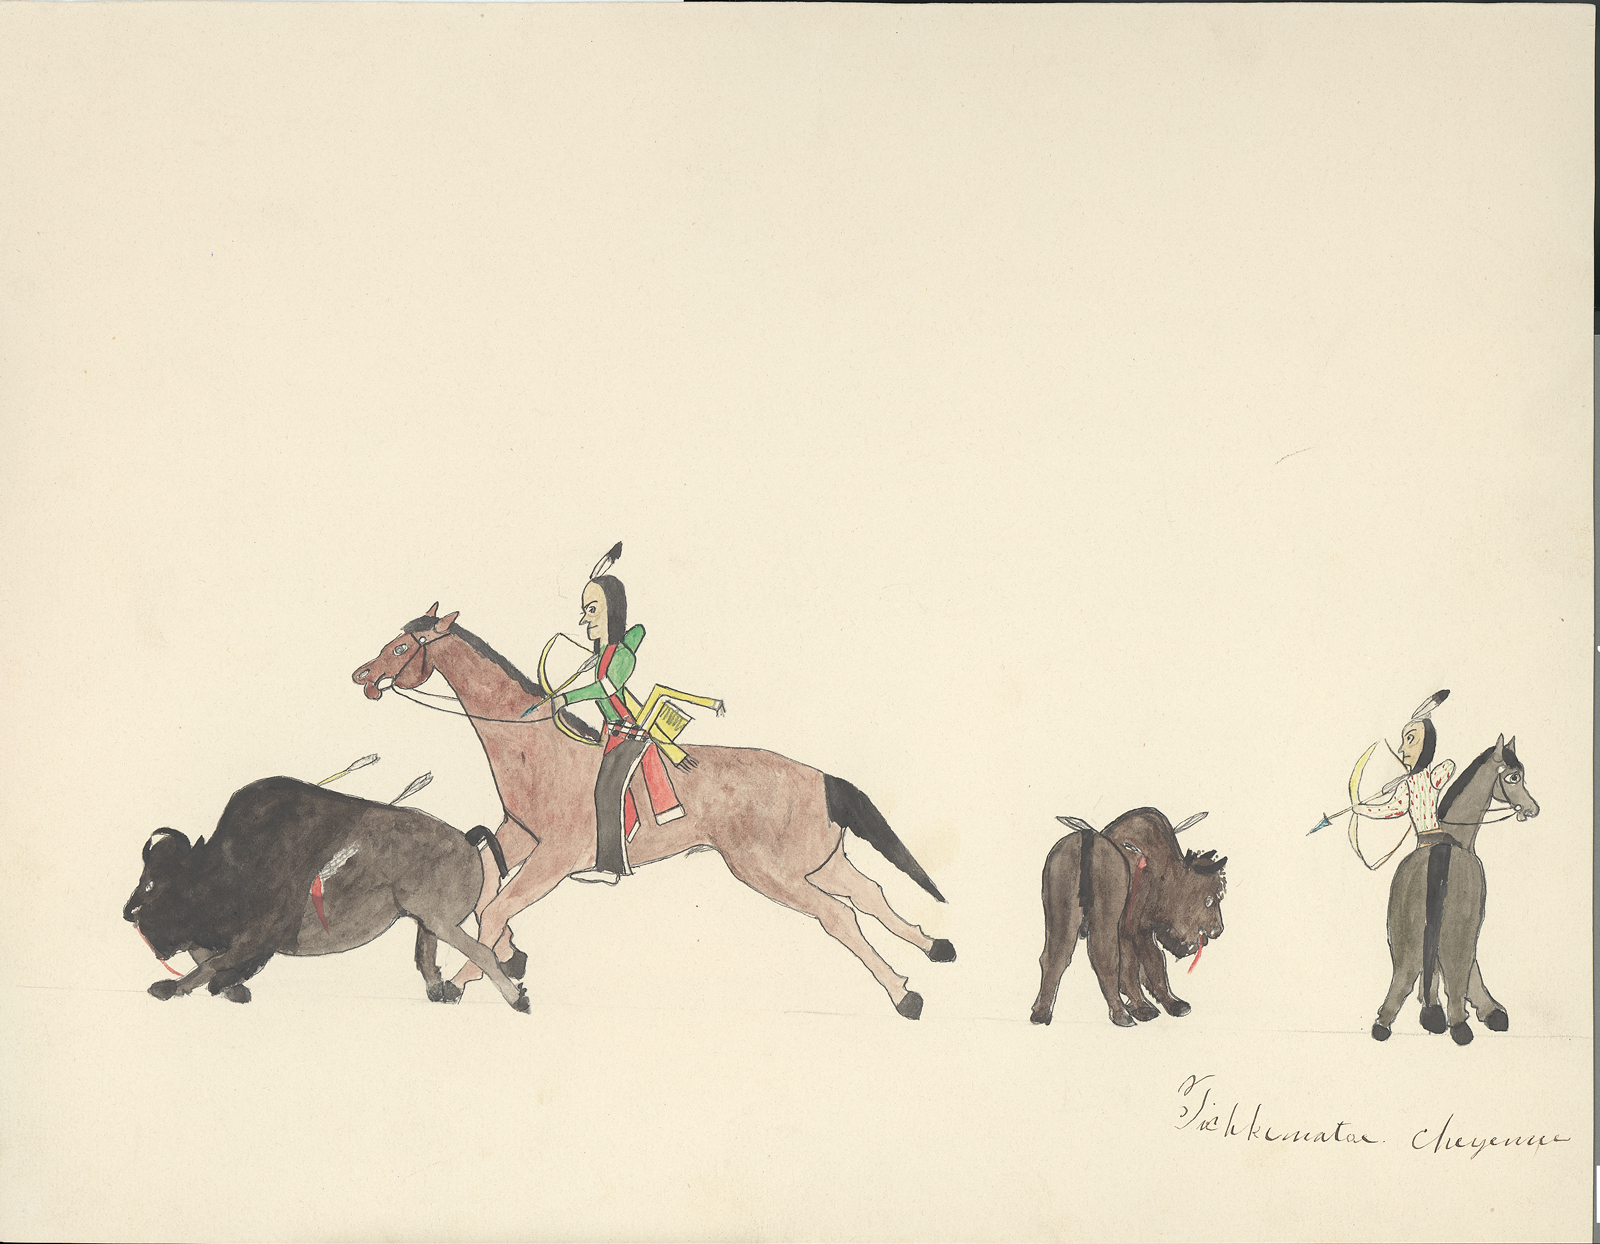 Tichkematse. Cheyenne